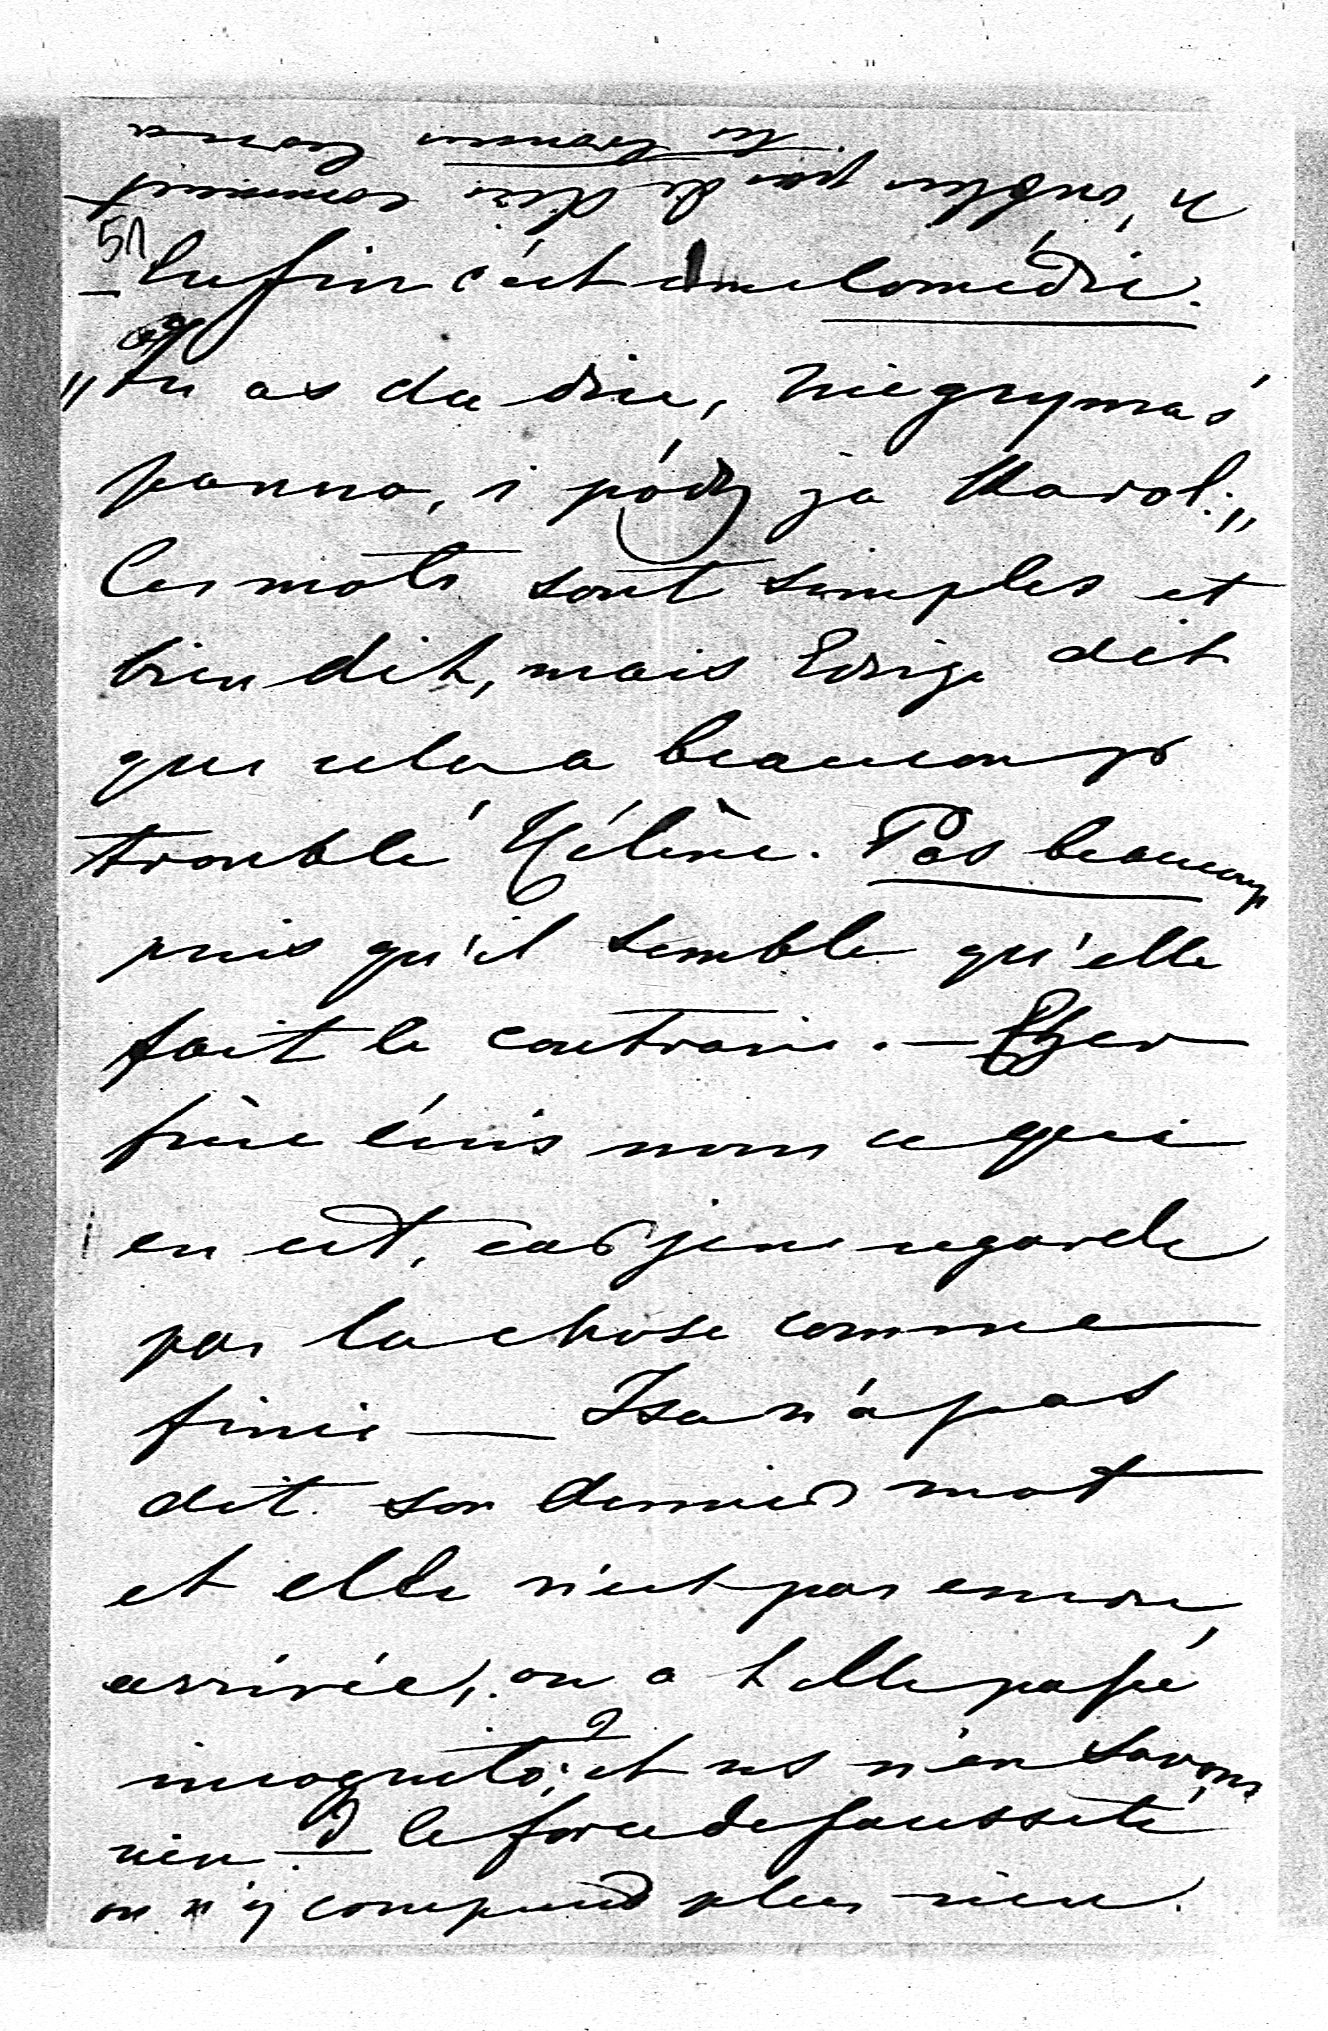 n'oublie pas de dire comment
tu
51
Enfin c'est une comedie.
"tu as du dire, nie grymaś
panna, i pódź za Karol."
Ces mots sont simples et
bien dit, mais Edvige dit
que cela a beaucoup
troublé Hélène. Pas beaucoup
puis qu'il semble qu'elle
fait le contraire. — Cher
frère écris nous ce qui
en est, car je ne regarde
pas la chose comme
finie — Isa n'a pas
dit son dernier mot
et elle n'est pas encore
arrivée, ou a t elle passé
incognito? et ns n'en savons
rien? — a force de fausseté
on n'y comprend plus rien.